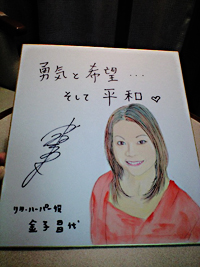 勇気と希望…
そして 平和♡
リタ・ハーパー役
金子昌代